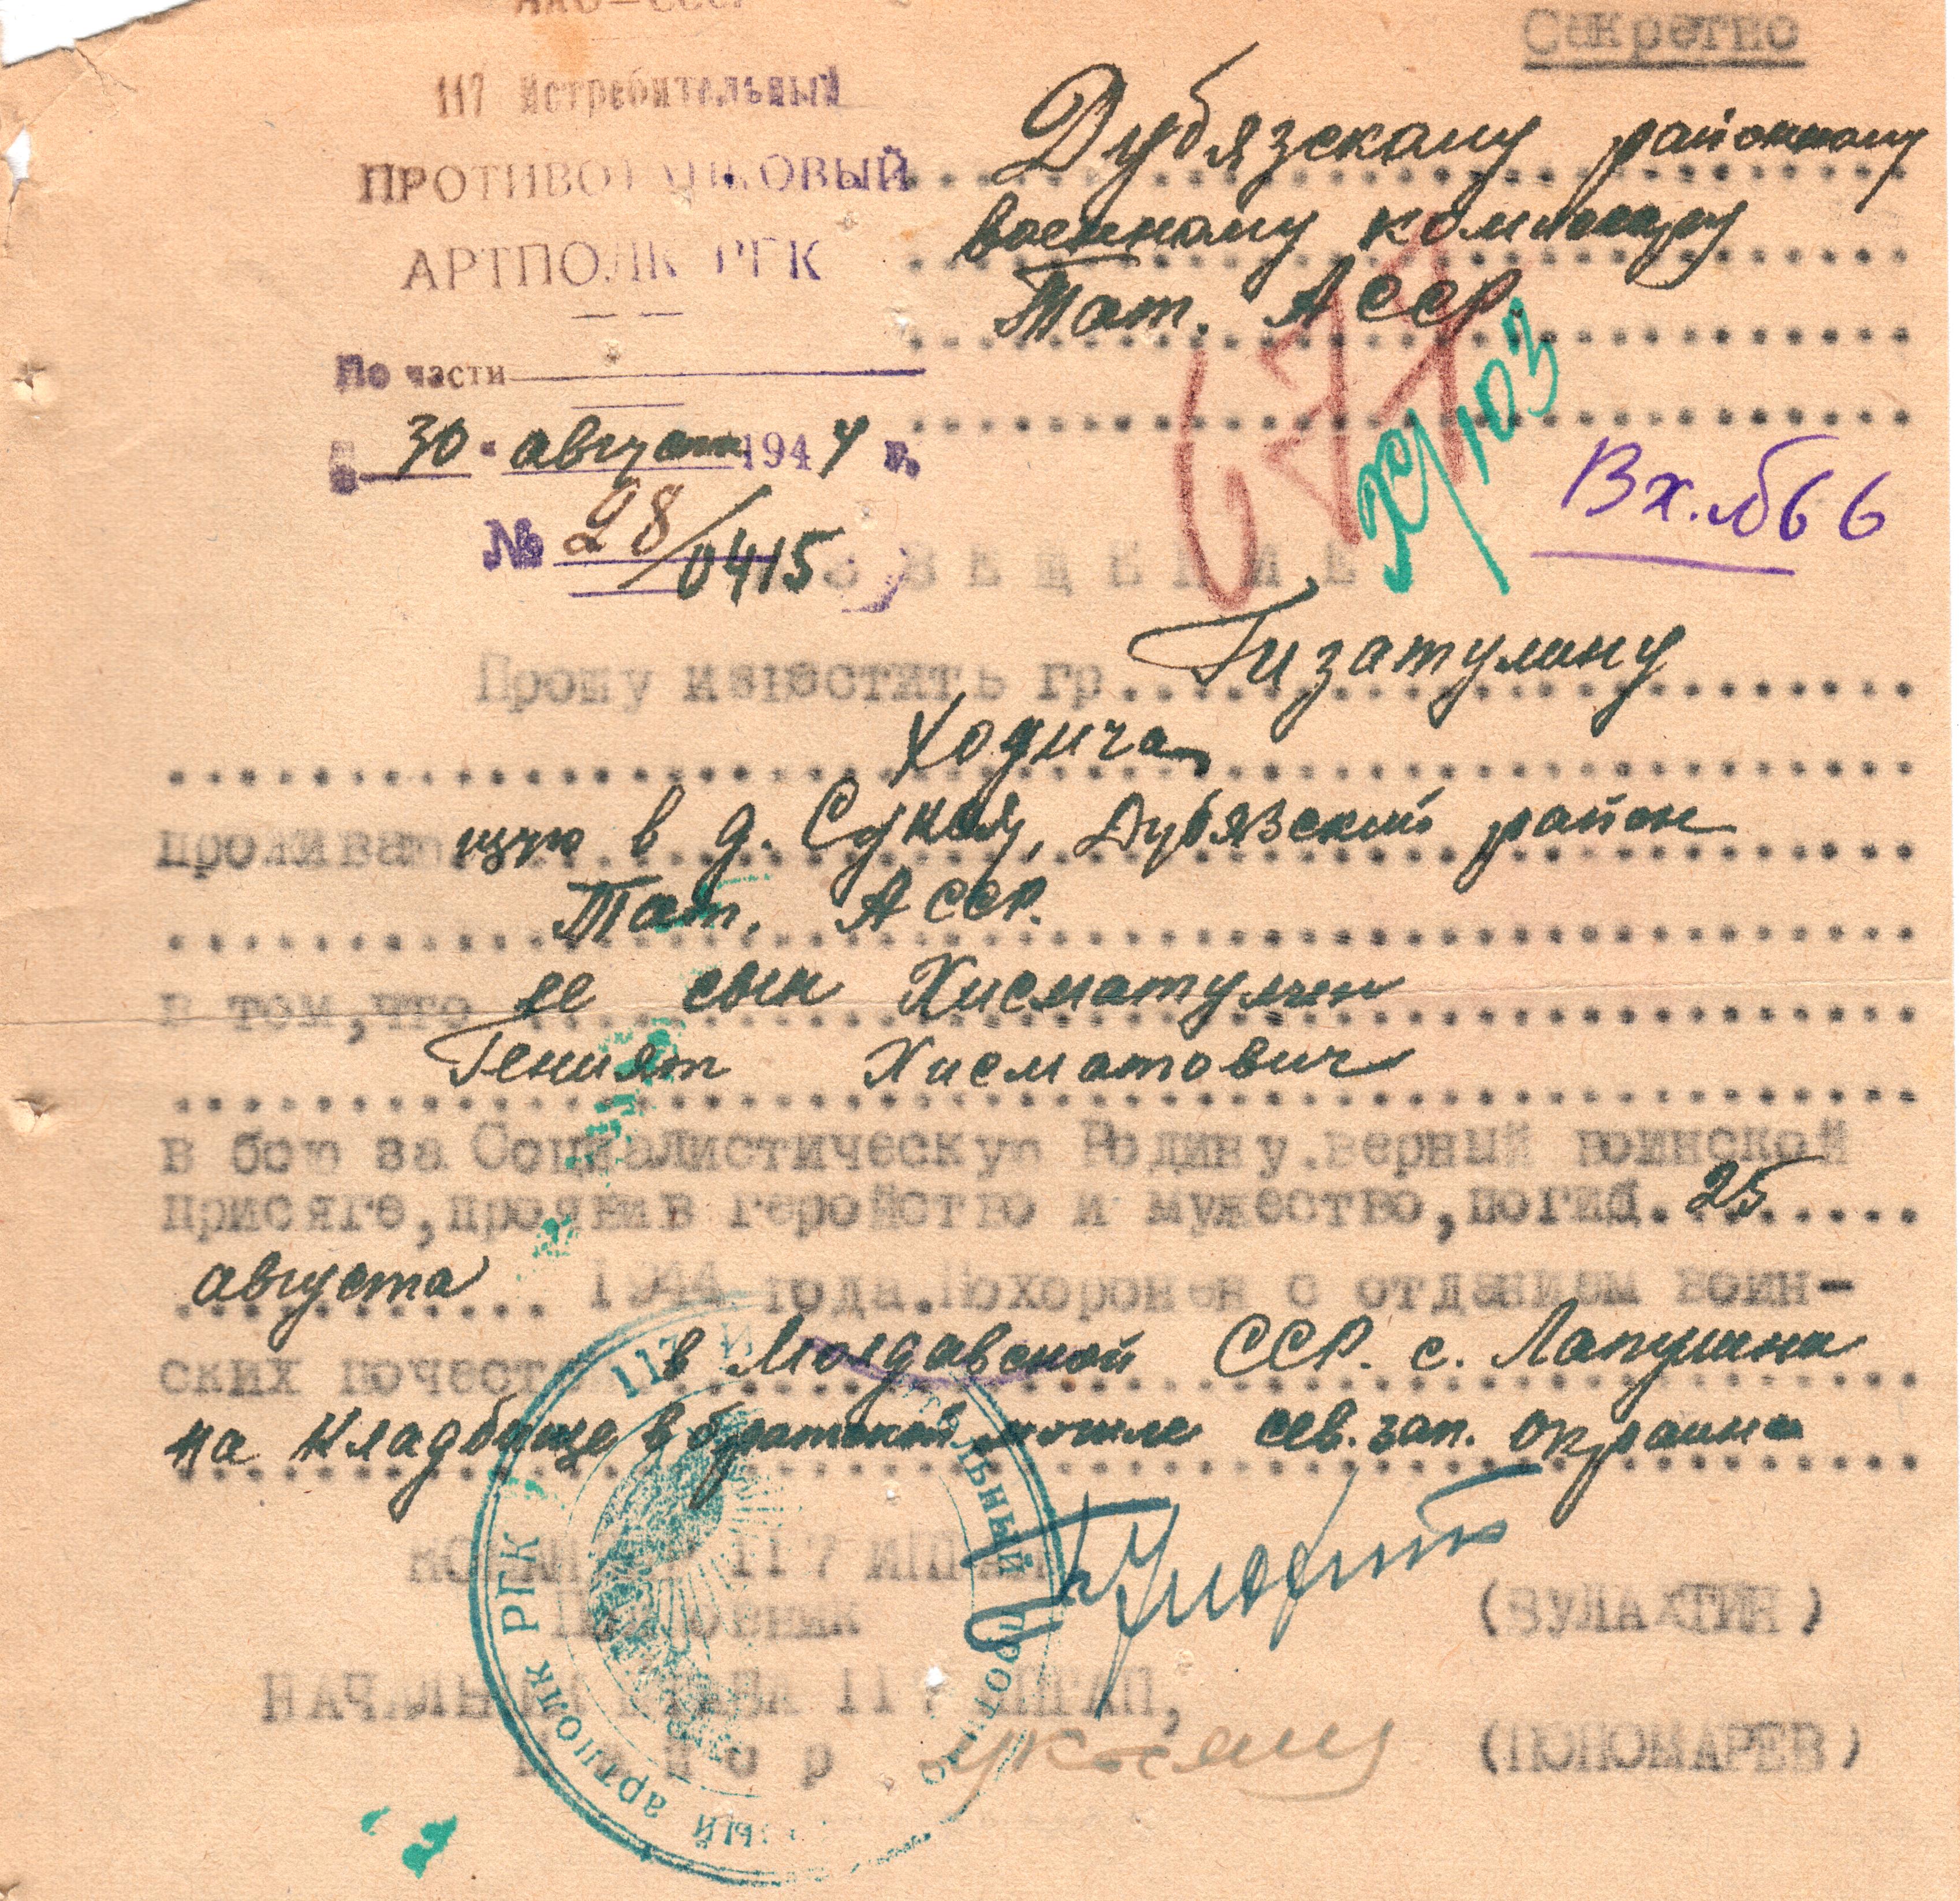 НКО-СССР
Секретно
117 Истребительный
ПРОТИВОТАНКОВЫЙ
АРТПОЛК РГК
Дубязскому районному
военному комиссару
Тат. АССР.
По части
30 августа 1944 г.
№ 28/0415
677
29/103
Вх. 566
ИЗВЕЩЕНИЕ
Прошу известить гр. Гизатулину
Ходича
проживаю щую в д. Сукая, Дубязский район
Тат. АССР.
в том, что ее сын Хисматулин
Геният Хисматович
в бою за Социалистическую Родину.верный воинской
присяге, проявив геройство и мужество, погиб. 25
августа 1944 года. Похоронен с отданием воин-
ских почестей в Молдавской ССР. с. Лапушна
на кладбище в братской могиле сев. зап. окраина
КОМАНДИР 117 ИПТАП
Полковник (БУЛАХТИН)
НАЧАЛЬНИК ШТАБА 117 ИПТАП,
Майор (ПОНОМАРЕВ)
117 И тельный Противо ый артполк РГК